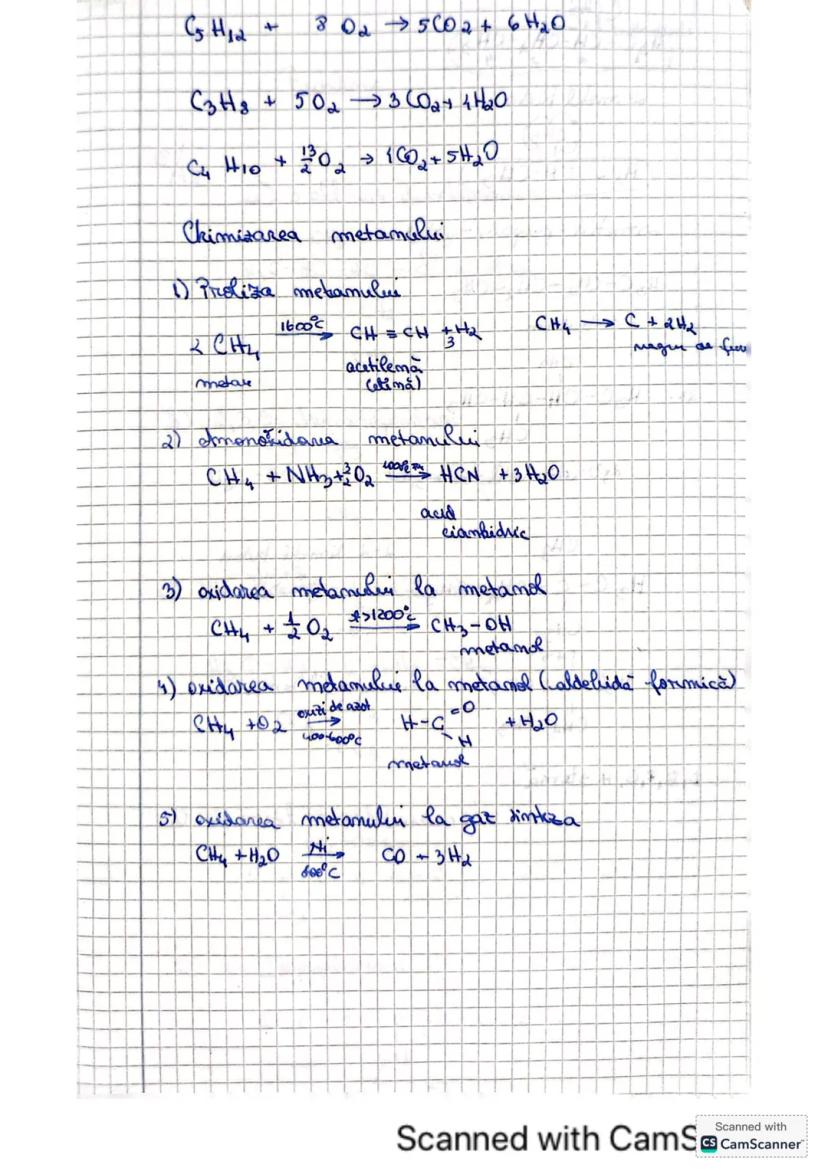 C5H12 + 8 O2 → 5CO2 + 6H2O
C3H8 + 5O2 → 3CO2 + 4H2O
C4H10 + 13/2 O2 → 4CO2 + 5H2O
Chimizarea metanului
1) Piroliza metanului
2 CH4 1600°C→ CH ≡ CH + 3 H2 CH4 → C + 2H2
metan acetilenă negru de fum
(etină)
2) Amonoxidarea metanului
CH4 + NH3 + 3/2 O2 → HCN + 3H2O
acid
cianhidric
3) oxidarea metanului la metanol
CH4 + 1/2 O2 t>1200°C→ CH3-OH
metanol
4) oxidarea metanului la metanal (aldehidă formică)
CH4 + O2 oxizi de azot→ 400-600°C H-C=O + H2O
H
metanal
5) oxidarea metanului la gaz sinteza
CH4 + H2O Ni→ 800°C CO + 3H2
Scanned with CamS
Scanned with
CS CamScanner